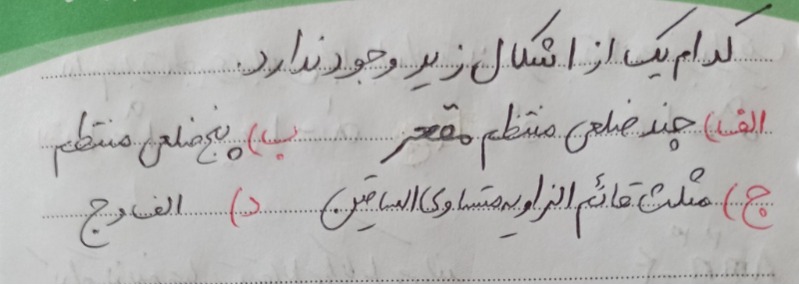 کدام یک از اشکال زیر وجود ندارد.
الف) چند ضلعی منتظم مقعر ب) پنج ضلعی منتظم
ج) مثلث قائم الزاویه متساوی الساقین د) الف و ج